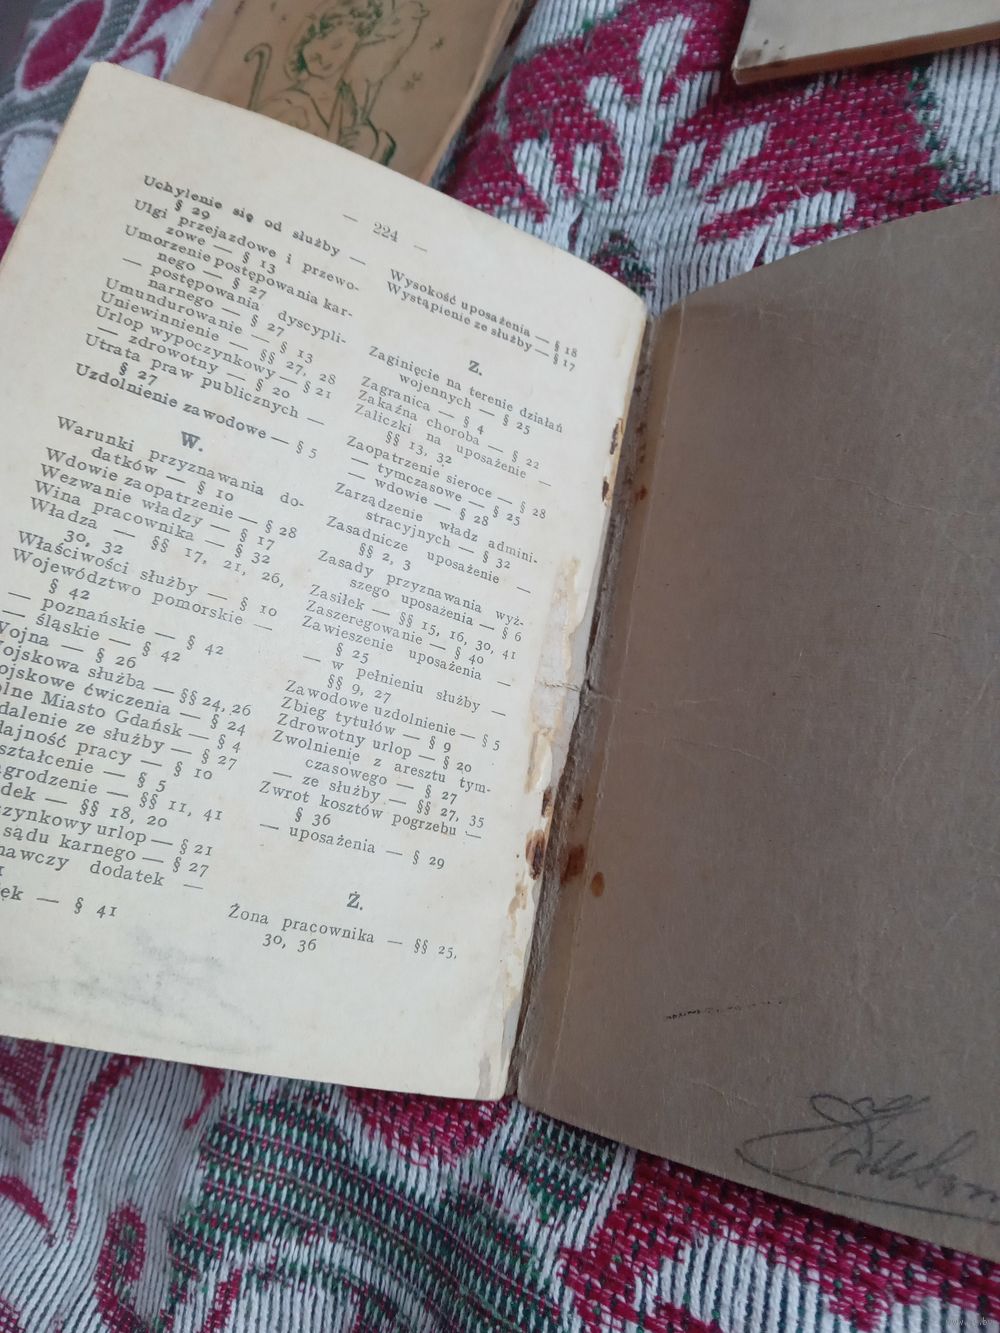 — 224 —
Uchylenie się od służby —
§ 29
Ulgi przejazdowe i przewo-
zowe — § 13
Umorzenie postępowania kar-
nego — § 27
— postępowania dyscypli-
narnego — § 27
Umundurowanie — § 13
Uniewinnienie — §§ 27, 28
Urlop wypoczynkowy — § 21
— zdrowotny — § 20
Utrata praw publicznych —
§ 27
Uzdolnienie zawodowe — § 5
W.
Warunki przyznawania do-
datków — § 10
Wdowie zaopatrzenie — § 28
Wezwanie władzy — § 17
Wina pracownika — § 32
Władza — §§ 17, 21, 26,
30, 32
Właściwości służby — § 10
Województwo pomorskie —
§ 42
— poznańskie — § 42
— śląskie — § 42
Wojna — § 26
ojskowa służba — §§ 24, 26
ojskowe ćwiczenia — § 24
olne Miasto Gdańsk — § 4
dalenie ze służby — § 27
dajność pracy — § 10
ształcenie — § 5
grodzenie — §§ 11, 41
dek — §§ 18, 20
szynkowy urlop — § 21
sądu karnego — § 27
nawczy dodatek —
ęk — § 41
Wysokość uposażenia — § 18
Wystąpienie ze służby — § 17
Z.
Zaginięcie na terenie działań
wojennych — § 25
Zagranica — § 4
Zakaźna choroba — § 22
Zaliczki na uposażenie —
§§ 13, 32
Zaopatrzenie sieroce — § 28
— tymczasowe — § 25
— wdowie — § 28
Zarządzenie władz admini-
stracyjnych — § 32
Zasadnicze uposażenie —
§§ 2, 3
Zasady przyznawania wyż-
szego uposażenia — § 6
Zasiłek — §§ 15, 16, 30, 41
Zaszeregowanie — § 40
Zawieszenie uposażenia —
§ 25
— w pełnieniu służby —
§§ 9, 27
Zawodowe uzdolnienie — § 5
Zbieg tytułów — § 9
Zdrowotny urlop — § 20
Zwolnienie z aresztu tym-
czasowego — § 27
— ze służby — §§ 27, 35
Zwrot kosztów pogrzebu —
§ 36
— uposażenia — § 29
Ż.
Żona pracownika — §§ 25,
30, 36